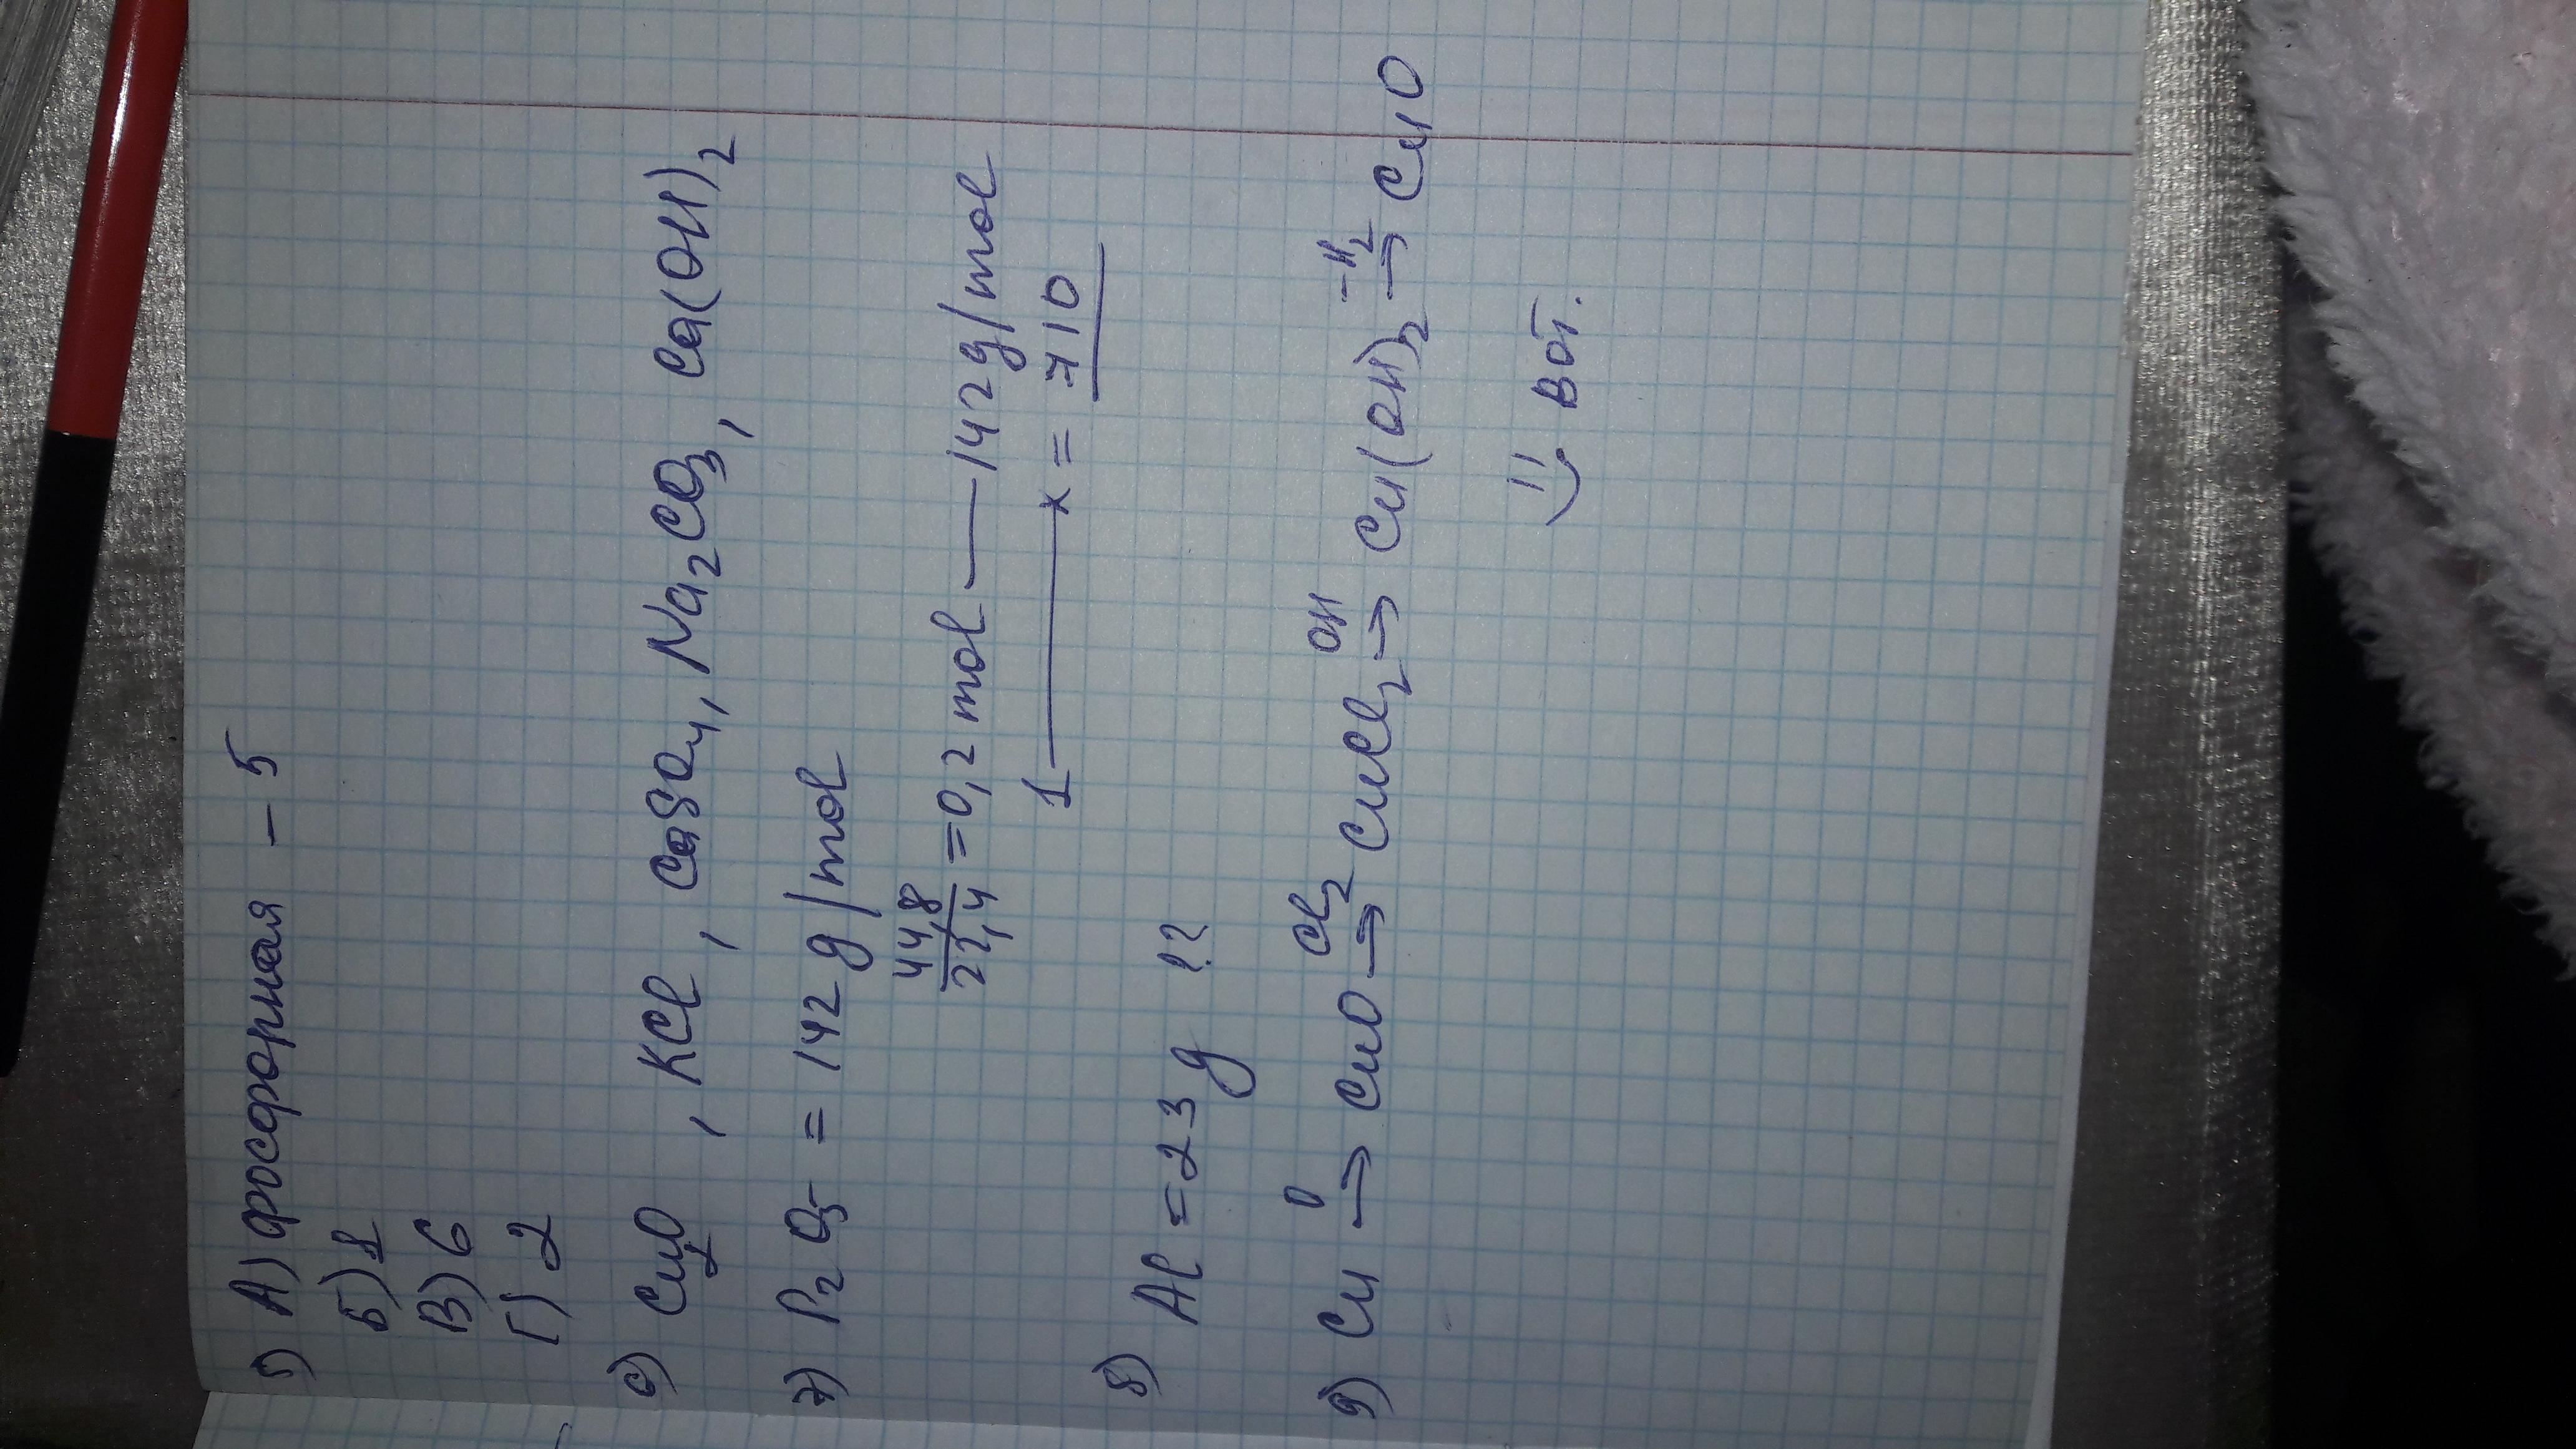 5) А) фосфорная - 5
Б) 1
В) 6
Г) 2
6) Cu2O, KCl, CaSO4, Na2CO3, Ca(OH)2
7) P2O5 = 142 g/mol
44,8/22,4 = 0,2 mol — 142 g/mol
1 — x = 710
8) Al = 23 g !?
O Cl2 OH -H2
9) Cu → CuO → CuCl2 → Cu(OH)2 → CuO
вот.